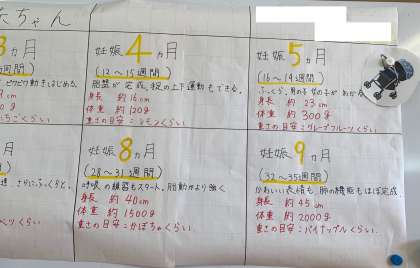 たちゃん
3ヵ月
週間)
ピクピク動きはじめる。
cm
くらい
妊娠4ヵ月
(12〜15週間)
胎盤が完成、手足の上下運動もできる。
身長 約16cm
体重 約120g
重さの目安:レモンくらい
妊娠5ヵ月
(16〜19週間)
身長 約23cm
体重 約300g
重さの目安:グレープフルーツくらい
ヵ月
週間)
くらい
妊娠8ヵ月
(28〜31週間)
呼吸の練習もスタート。胎動がより強く
身長 約40cm
体重 約1500g
重さの目安:かぼちゃくらい
妊娠9ヵ月
(32〜35週間)
かわいい表情も。肺の機能もほぼ完成。
身長 約45cm
体重 約2000g
重さの目安:パイナップルくらい